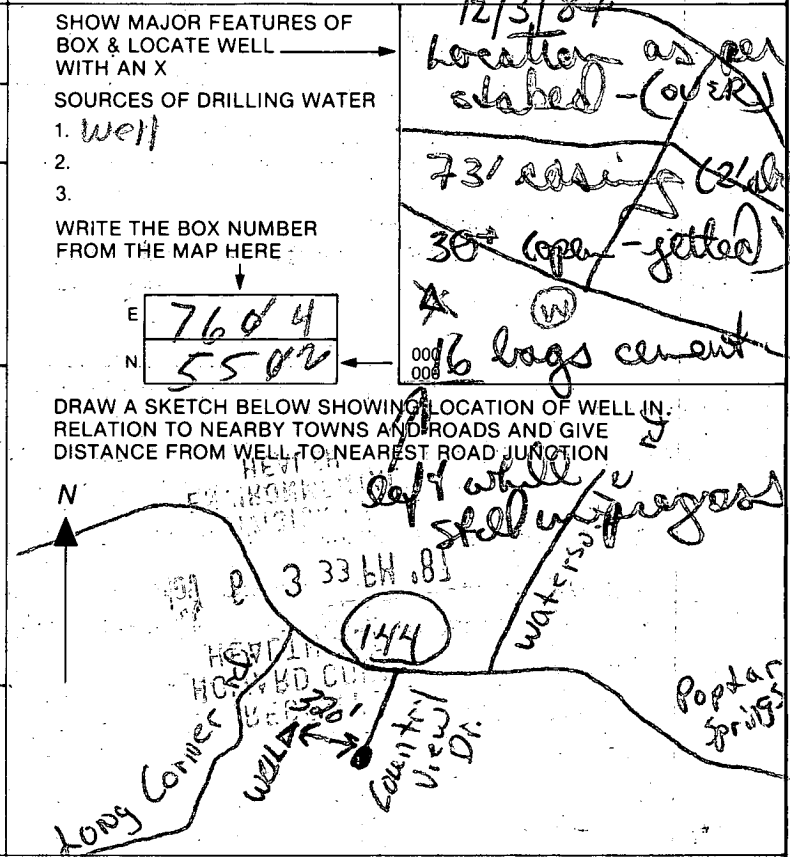 SHOW MAJOR FEATURES OF
BOX & LOCATE WELL
WITH AN X
SOURCES OF DRILLING WATER
1. Well
2.
3.
WRITE THE BOX NUMBER
FROM THE MAP HERE
E 7604
N 5502
12/3/84
Location as per
staked - (OVER)
73' casing (2'
30 (open - jetted)
W
000
000
16 bags cement
DRAW A SKETCH BELOW SHOWING LOCATION OF WELL IN
RELATION TO NEARBY TOWNS AND ROADS AND GIVE
DISTANCE FROM WELL TO NEAREST ROAD JUNCTION
left while
still in progress
N
144
Watersville rd
Poplar
Springs
Long Corner rd.
WELL
320'
Country
View
Dr.